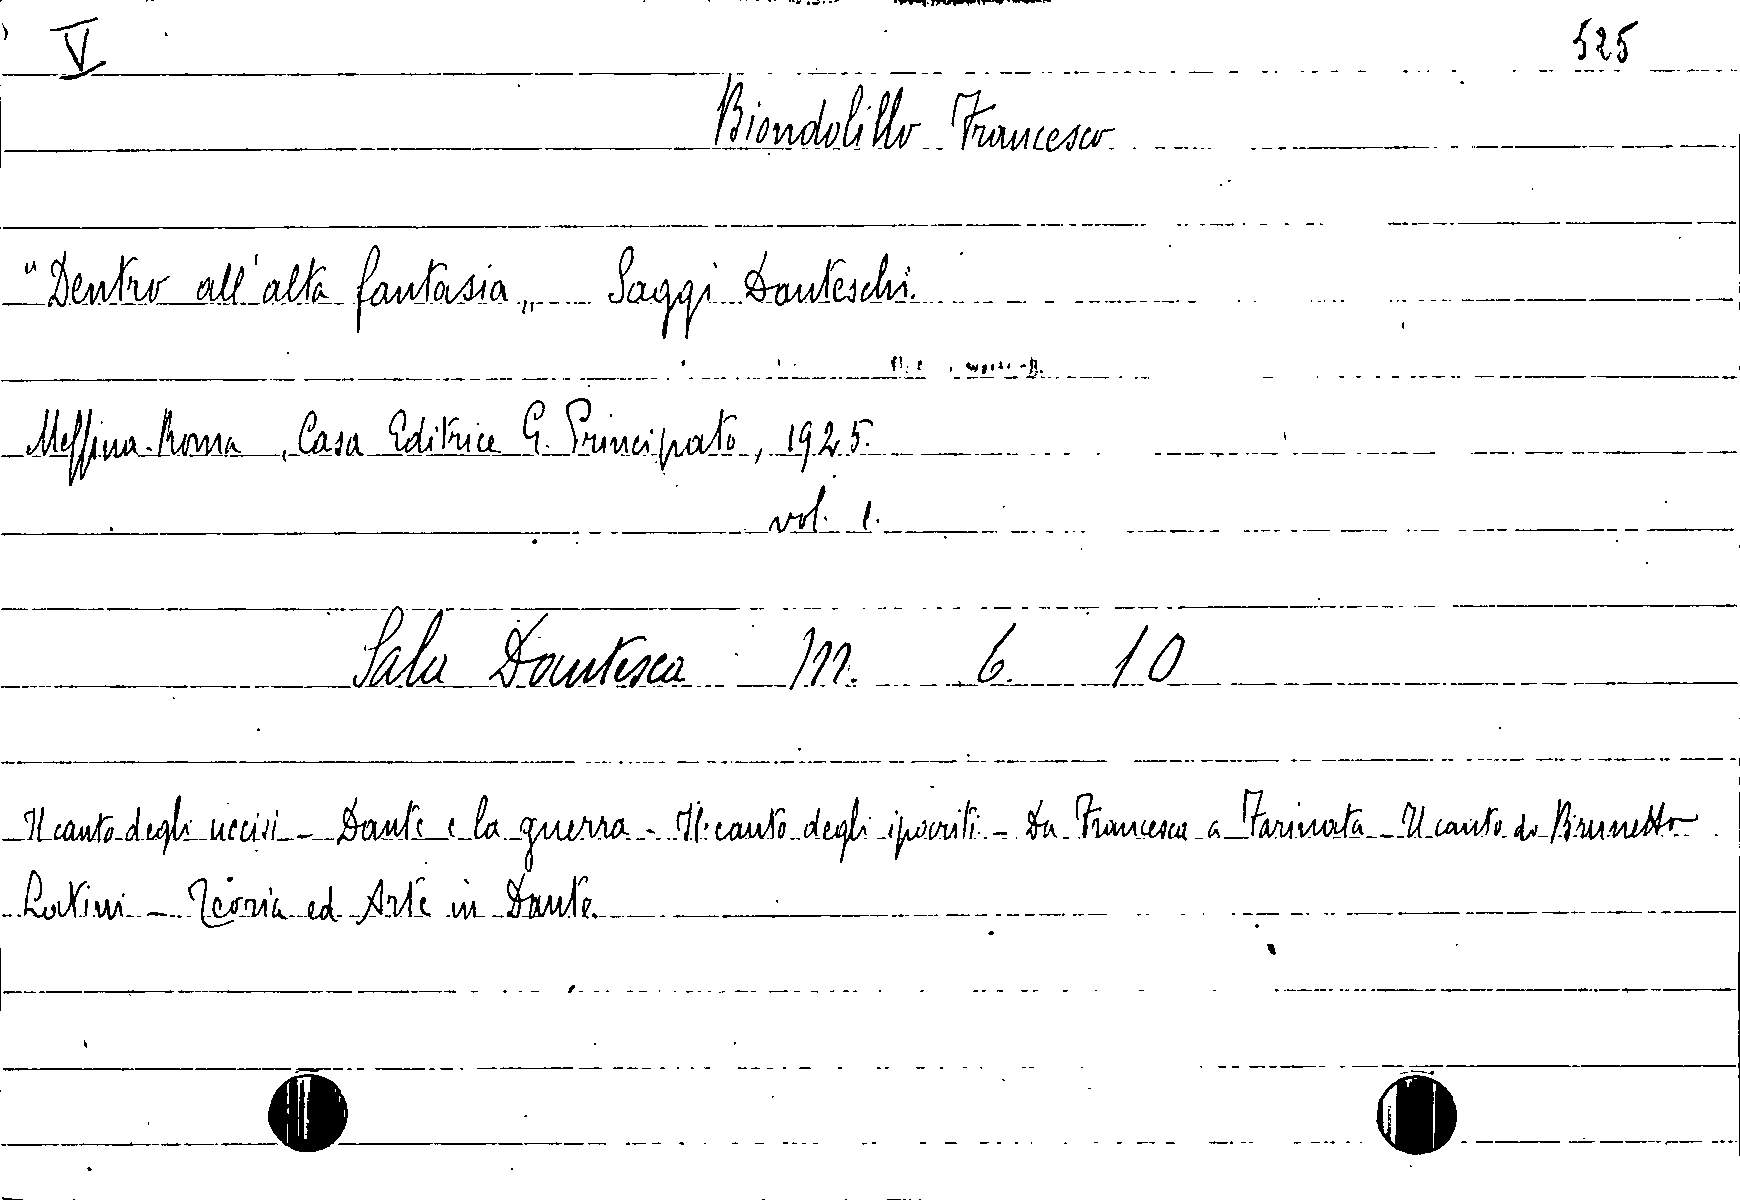 V 525
Biondolillo Francesco
"Dentro all'alta fantasia„ Saggi Danteschi.
Messina-Roma, Casa Editrice G. Principato, 1925.
vol. 1.
Sala Dantesca M. 6. 10
Il canto degli uccisi - Dante e la guerra - Il canto degli ipocriti - Da Francesca a Farinata - Il canto di Brunetto
Latini - Teoria ed Arte in Dante.